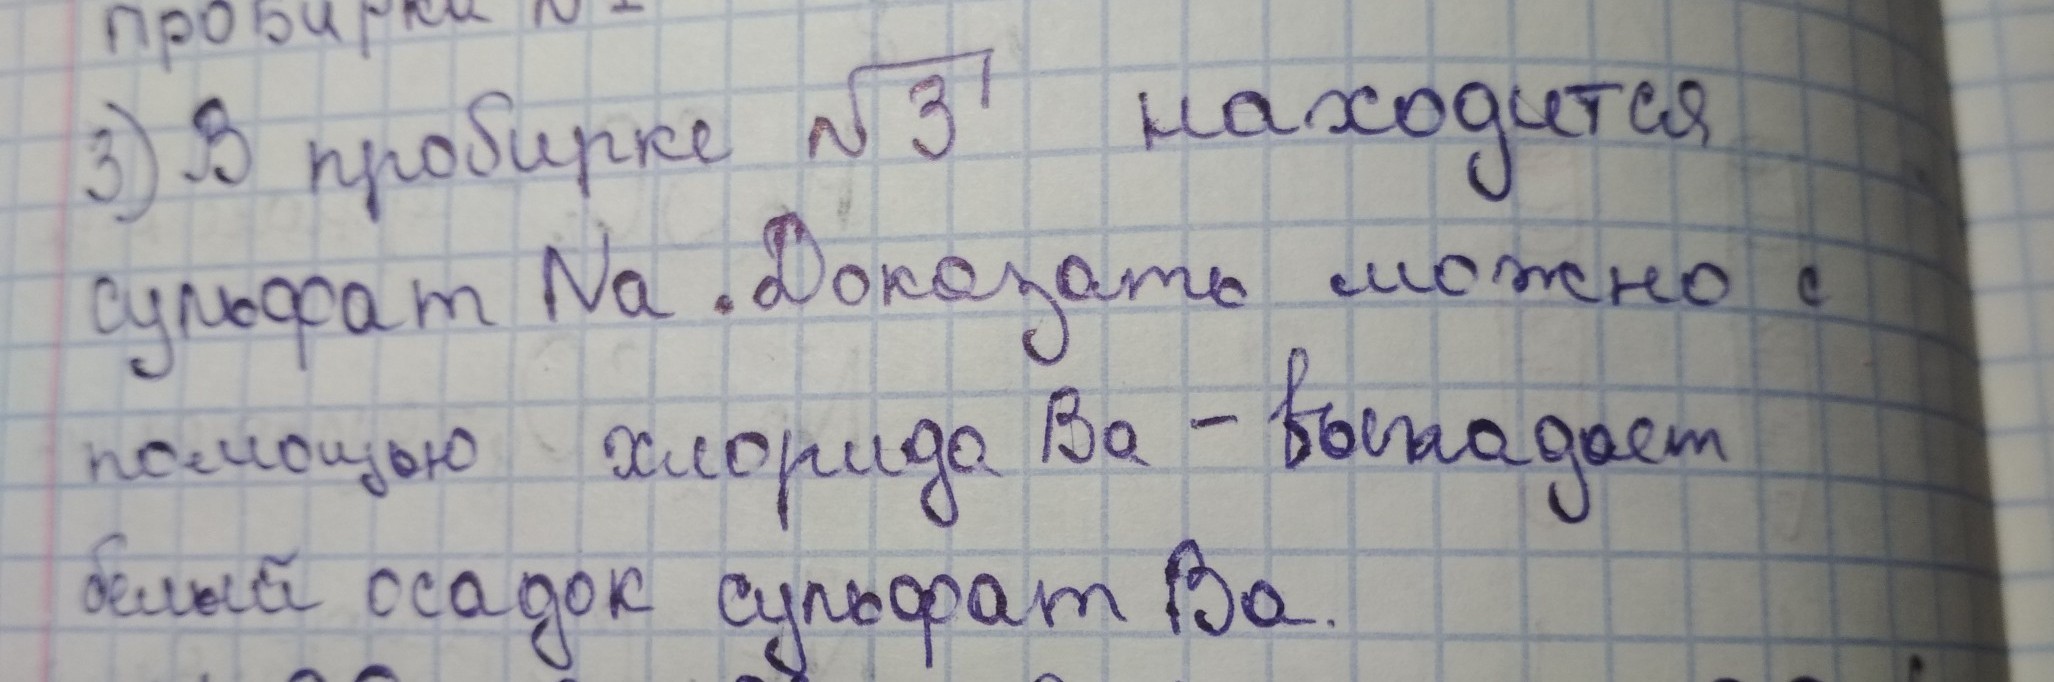 пробирки N
3) В пробирке √3 находится
сульфат Na. Доказать можно с
помощью хлорида Ba - выпадает
белый осадок сульфат Ba.